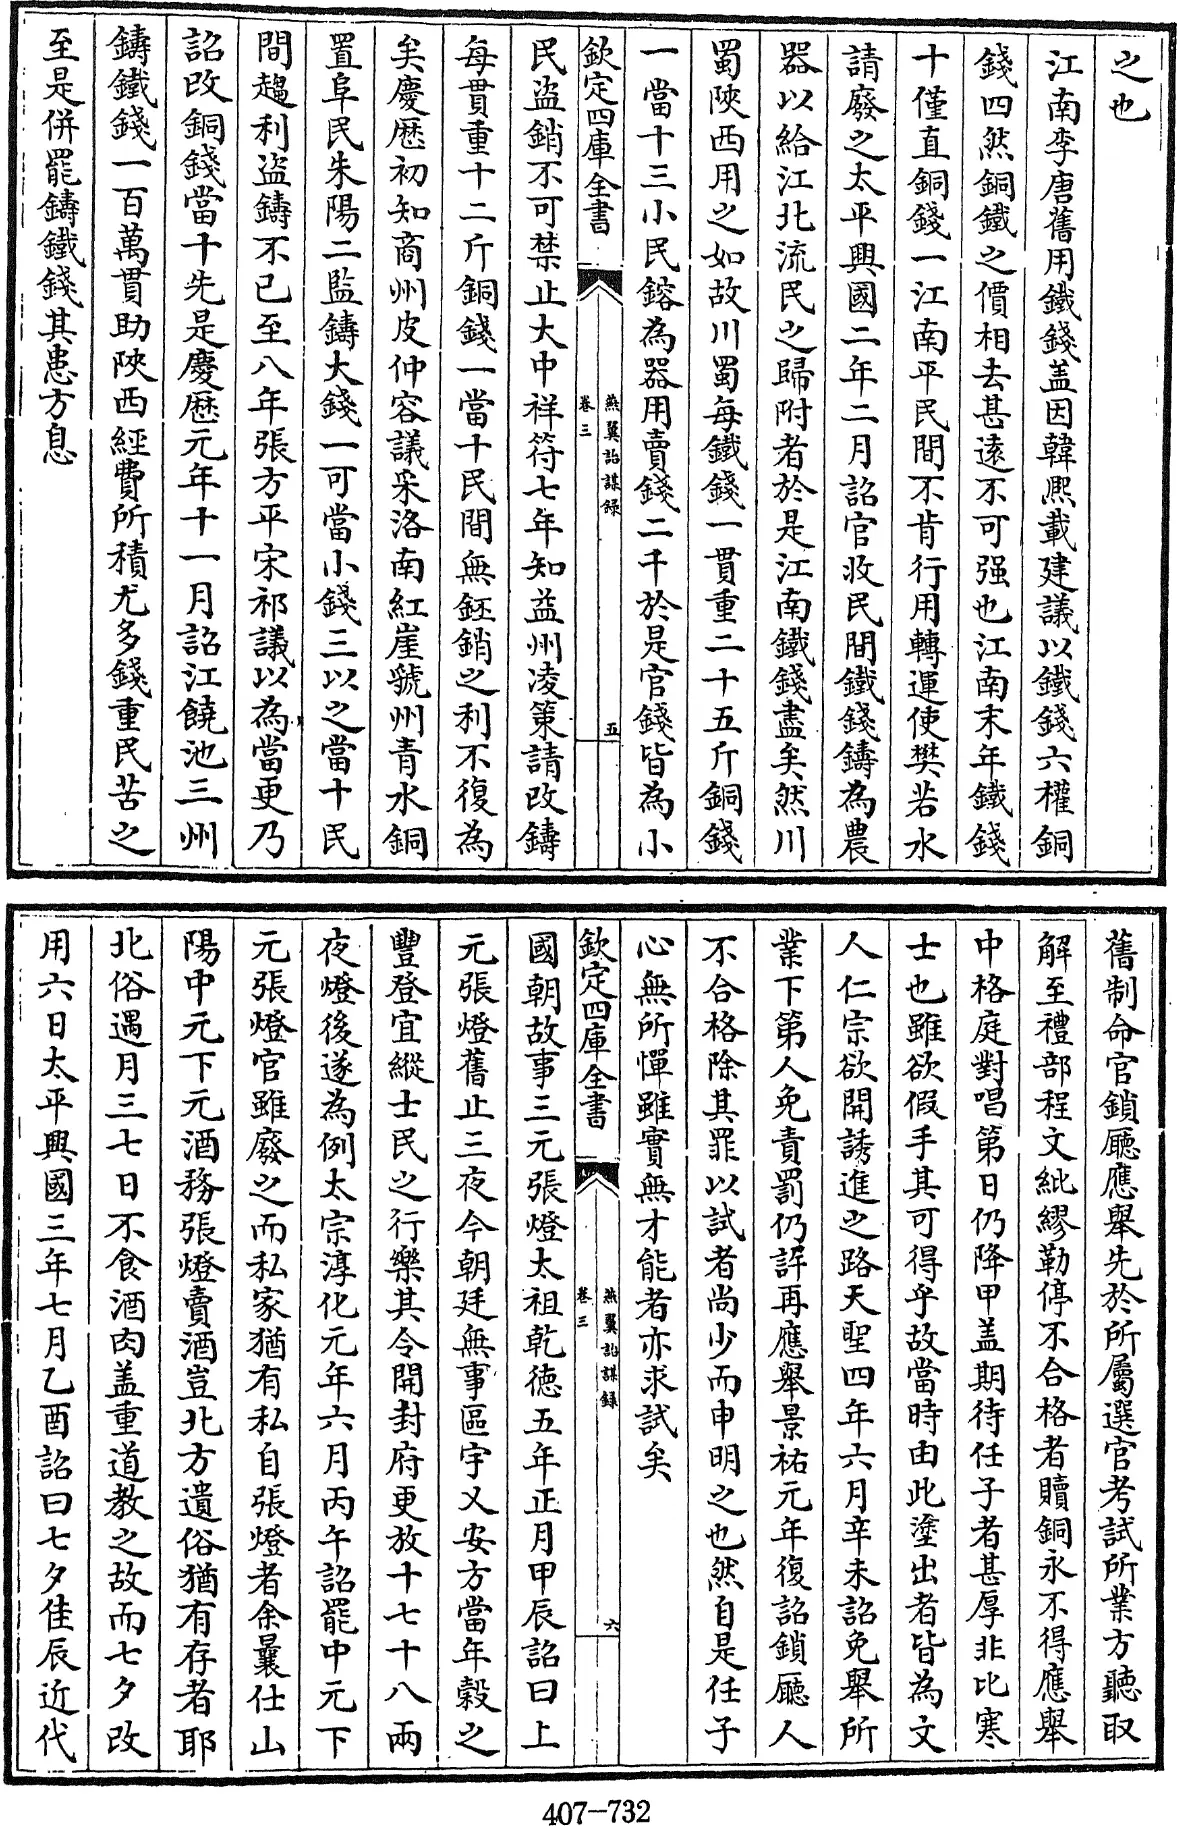 之也
江南李唐舊用鐵錢盖因韓熈載建議以鐵錢六權銅
錢四然銅鐵之價相去甚逺不可强也江南末年鐵錢
十僅直銅錢一江南平民間不肯行用轉運使樊若水
請廢之太平興國二年二月詔官收民間鐵錢鑄為農
器以給江北流民之歸附者於是江南鐵錢盡矣然川
蜀陜西用之如故川蜀每鐵錢一貫重二十五斤銅錢
一當十三小民鎔為器用賣錢二千於是官錢皆為小
欽定四庫全書
燕翼詒謀録
卷三
五
民盗銷不可禁止大中祥符七年知益州凌策請改鑄
每貫重十二斤銅錢一當十民間無鉟銷之利不復為
矣慶厯初知商州皮仲容議采洛南紅崖虢州青水銅
置阜民朱陽二監鑄大錢一可當小錢三以之當十民
間趨利盗鑄不已至八年張方平宋祁議以為當更乃
詔改銅錢當十先是慶厯元年十一月詔江饒池三州
鑄鐵錢一百萬貫助陜西經費所積尤多錢重民苦之
至是併罷鑄鐵錢其患方息
舊制命官鎖廳應舉先於所屬選官考試所業方聽取
解至禮部程文紕繆勒停不合格者贖銅永不得應舉
中格庭對唱第日仍降甲盖期待任子者甚厚非比寒
士也雖欲假手其可得乎故當時由此塗出者皆為文
人仁宗欲開誘進之路天聖四年六月辛未詔免舉所
業下第人免責罰仍許再應舉景祐元年復詔鎖廳人
不合格除其罪以試者尚少而申明之也然自是任子
心無所憚雖實無才能者亦求試矣
欽定四庫全書
燕翼詒謀録
卷三
六
國朝故事三元張燈太祖乾徳五年正月甲辰詔曰上
元張燈舊止三夜今朝廷無事區宇乂安方當年榖之
豐登宜縱士民之行樂其令開封府更放十七十八兩
夜燈後遂為例太宗淳化元年六月丙午詔罷中元下
元張燈官雖廢之而私家猶有私自張燈者余曩仕山
陽中元下元酒務張燈賣酒豈北方遺俗猶有存者耶
北俗遇月三七日不食酒肉盖重道教之故而七夕改
用六日太平興國三年七月乙酉詔曰七夕佳辰近代
407-732